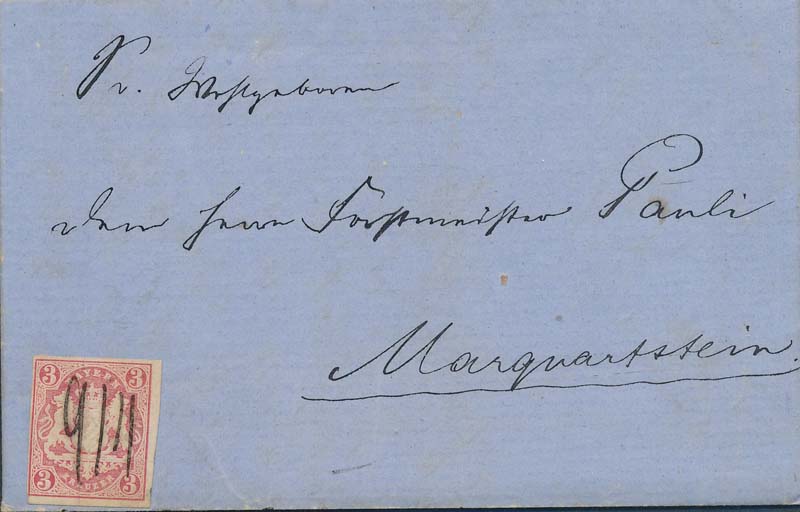 Sr. Wohlgeboren
dem Herrn Forstmeister Pauli
Marquartstein.
3 BAYERN 3
3 KREUZER 3